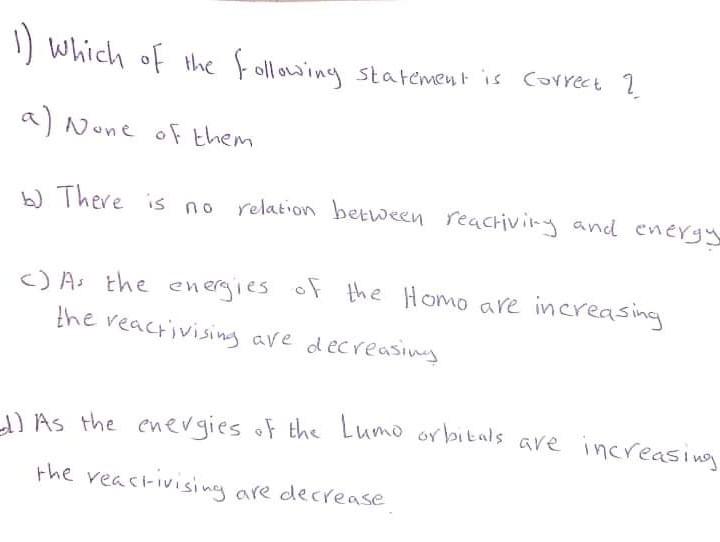 1) Which of the following statement is correct ?
a) None of them
b) There is no relation between reactivity and energy
c) As the energies of the Homo are increasing
the reactivising are decreasing
d) As the energies of the Lumo orbitals are increasing
the reactivising are decrease